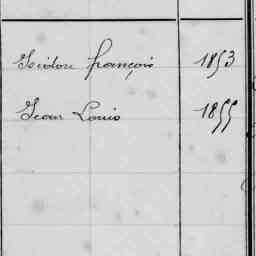 Isidore françois 1853
Jean Louis 1855